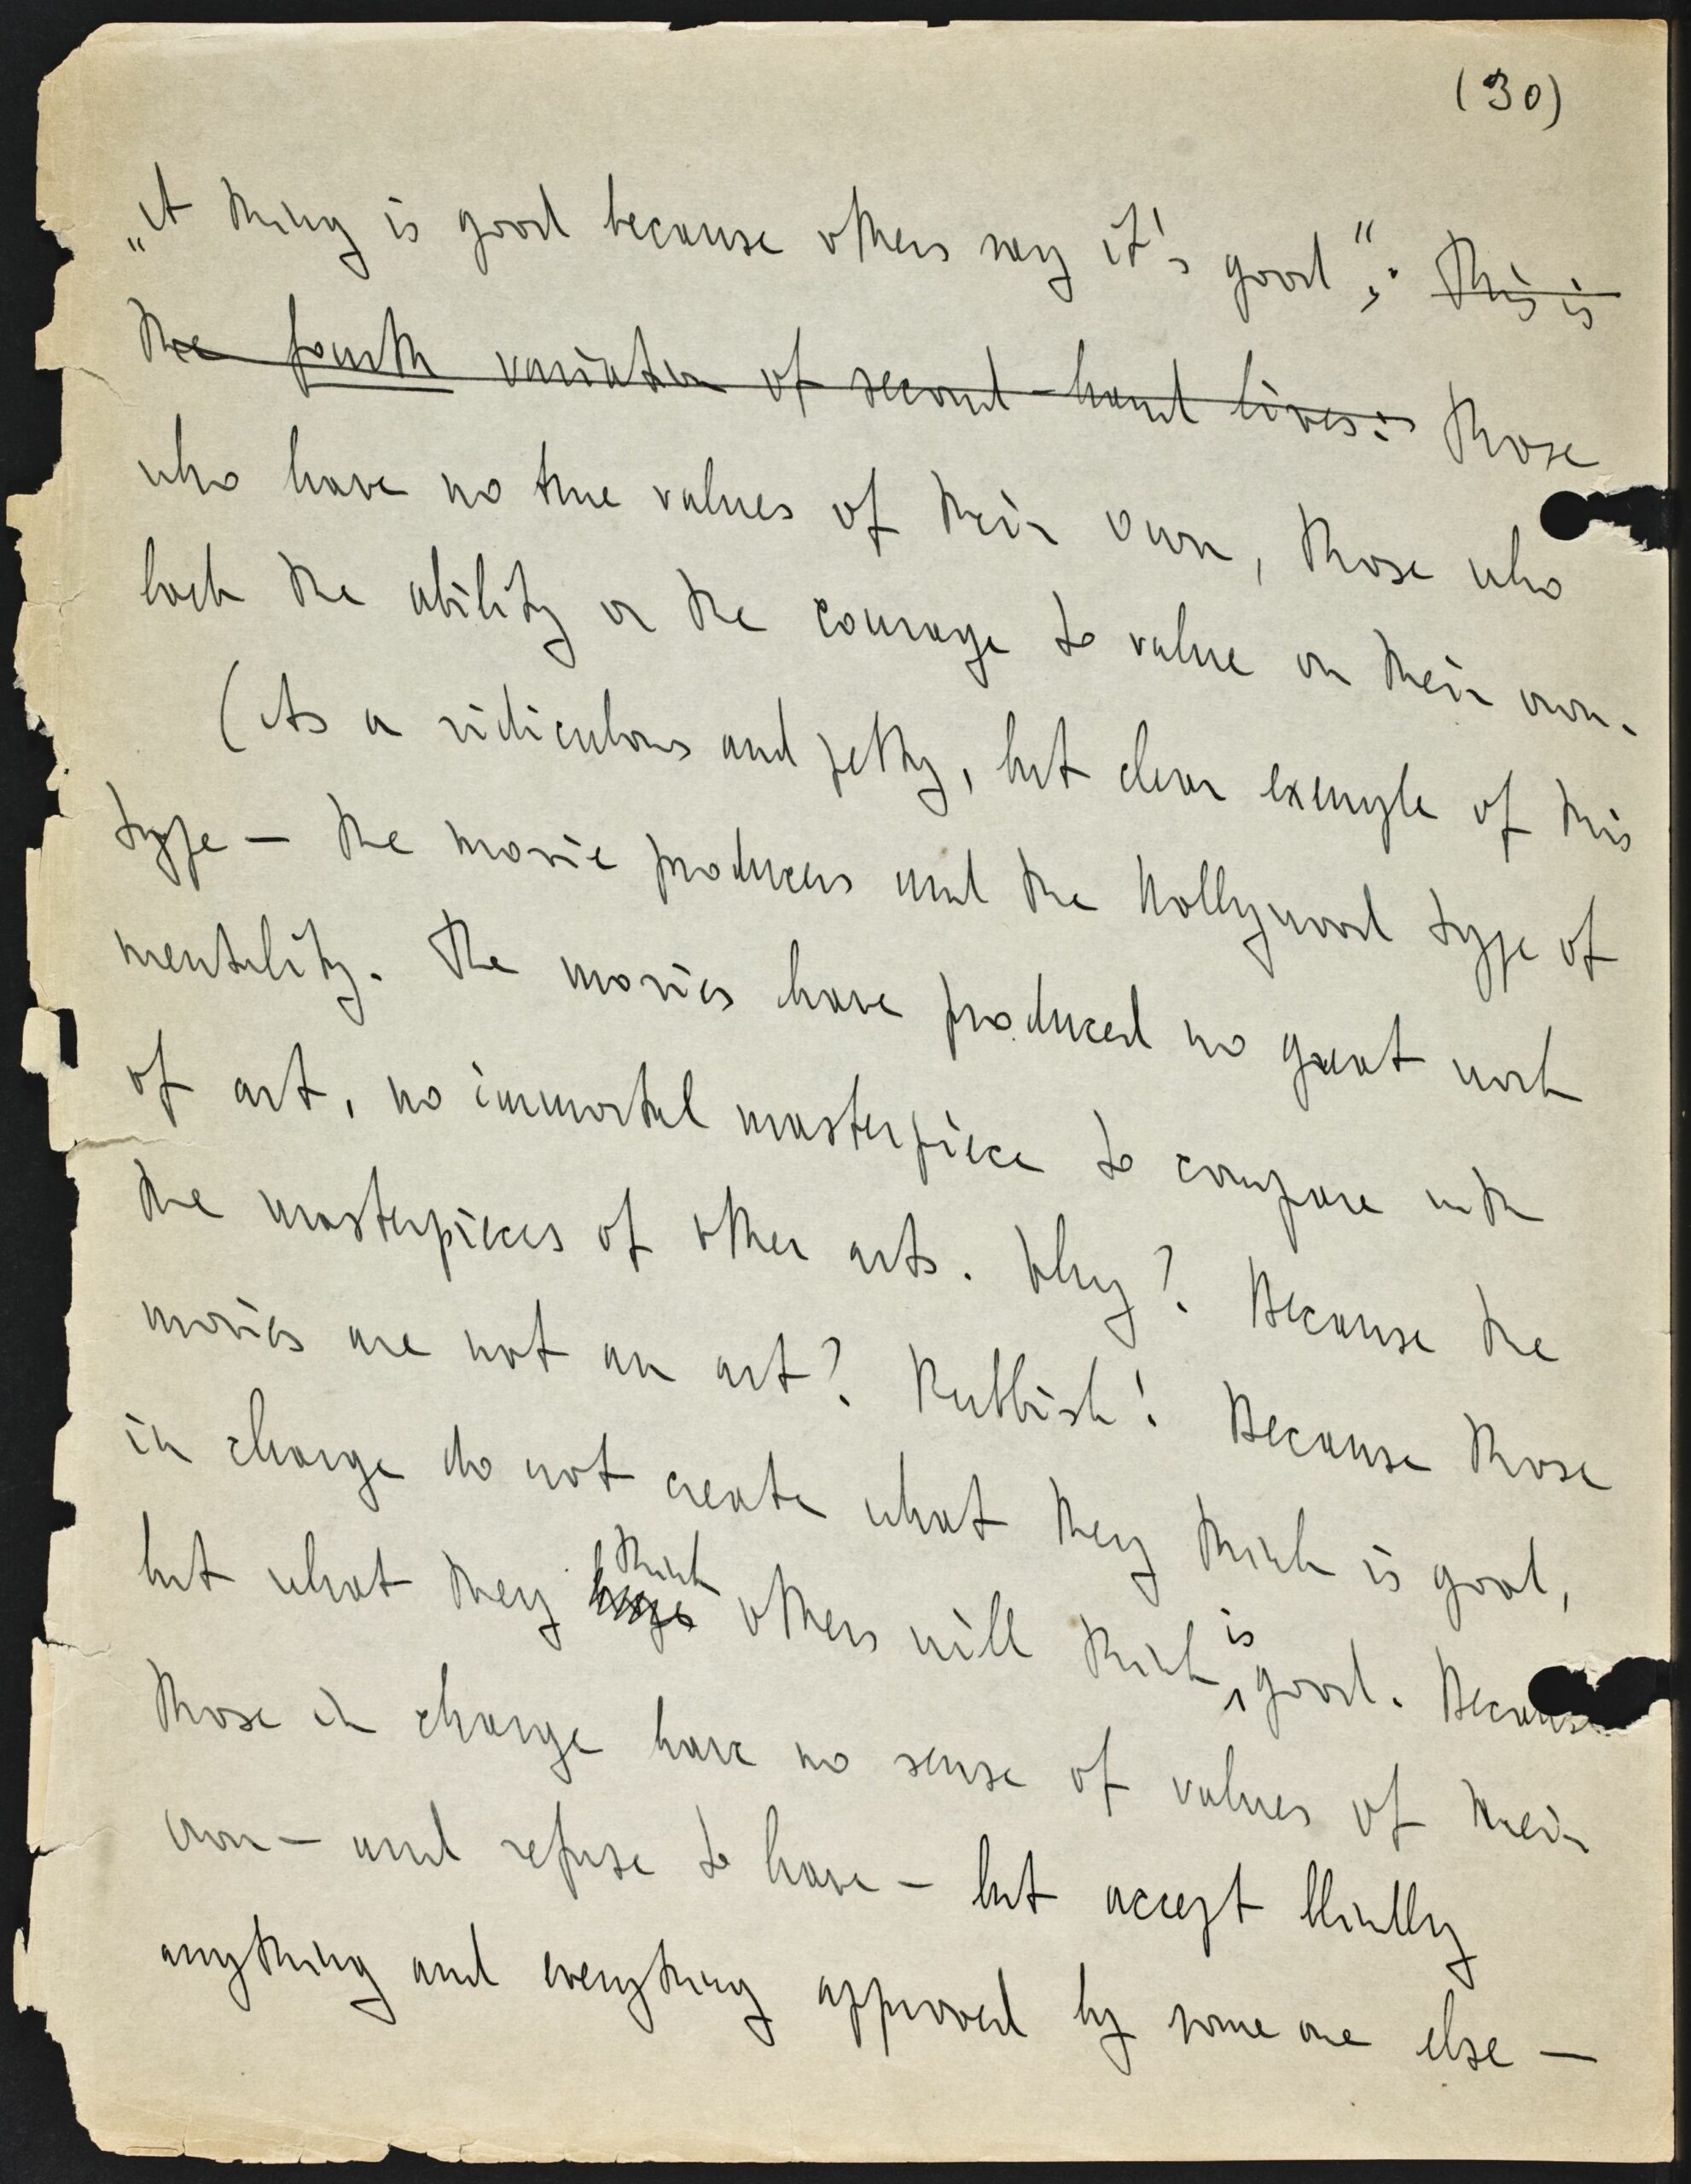 (30)
„A thing is good because others say it's good“; This is
the fourth variation of second-hand lives: Those
who have no true values of their own, those who
lack the ability or the courage to value on their own.
(As a ridiculous and petty, but clear example of this
type — the movie producers and the Hollywood type of
mentality. The movies have produced no great work
of art, no immortal masterpiece to compare with
the masterpieces of other arts. Why? Because the
movies are not an art? Rubbish! Because those
in charge do not create what they think is good,
but what they think others will think is good. Because
those in charge have no sense of values of their
own — and refuse to have — but accept blindly
anything and everything approved by some one else —